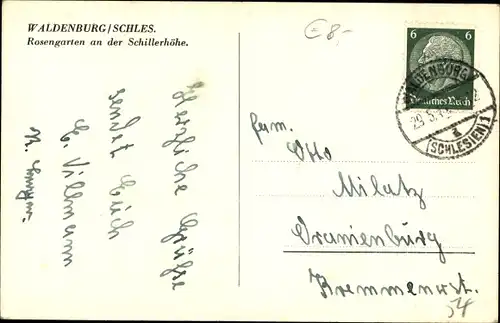 WALDENBURG/SCHLES.
Rosengarten an der Schillerhöhe.
€8,-
6 6
Deutsches Reich
WALDENBURG
(SCHLESIEN) 1
29.5.
a
Herzliche Grüße
sendet Euch
E. Villmann
Fam.
Otto
Milatz
Oranienburg
Kremmenerst.
54